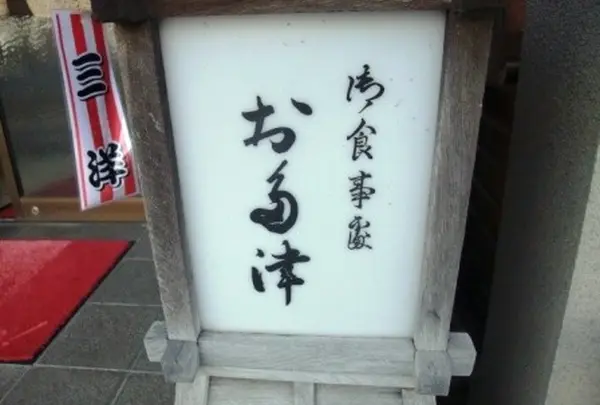 御食事処
お多津
三洋